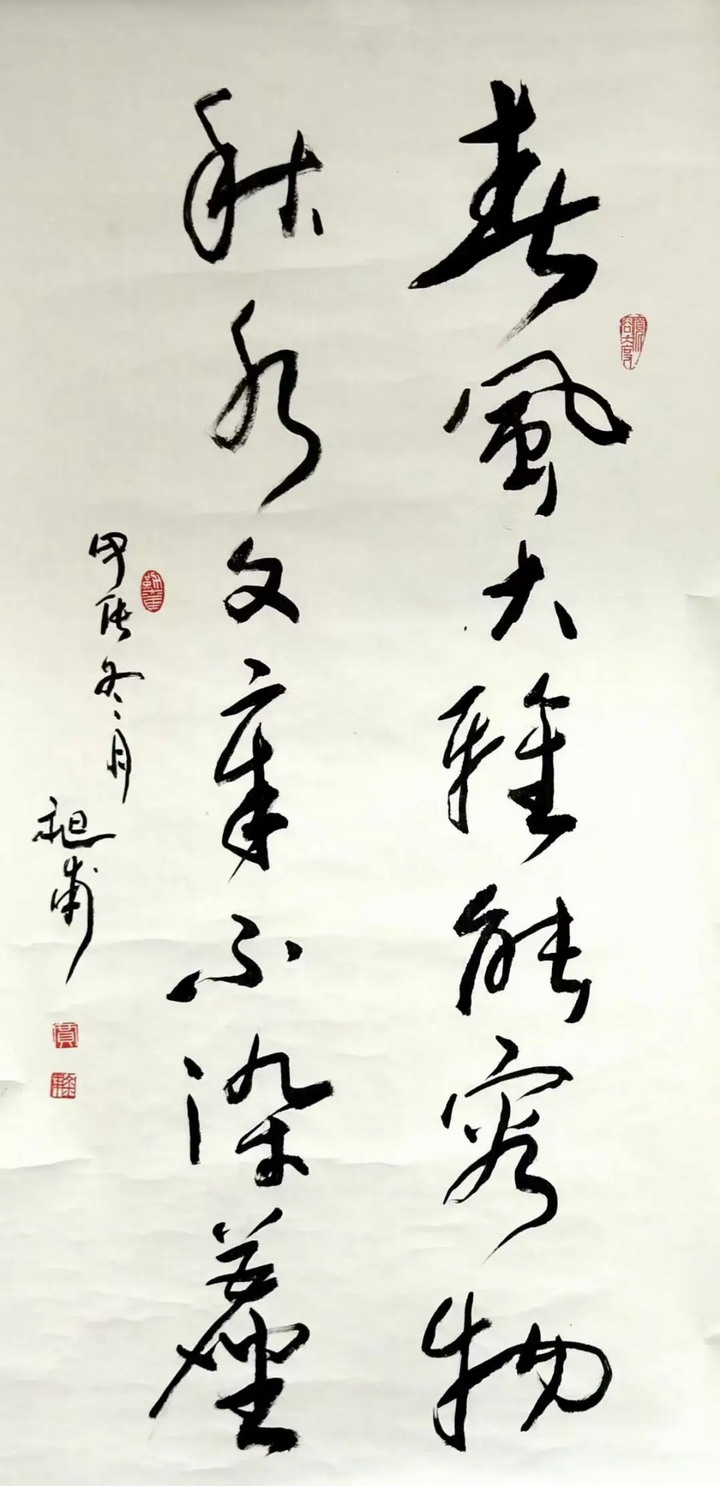 春風大雅能容物
秋水文章不染塵
甲辰冬月